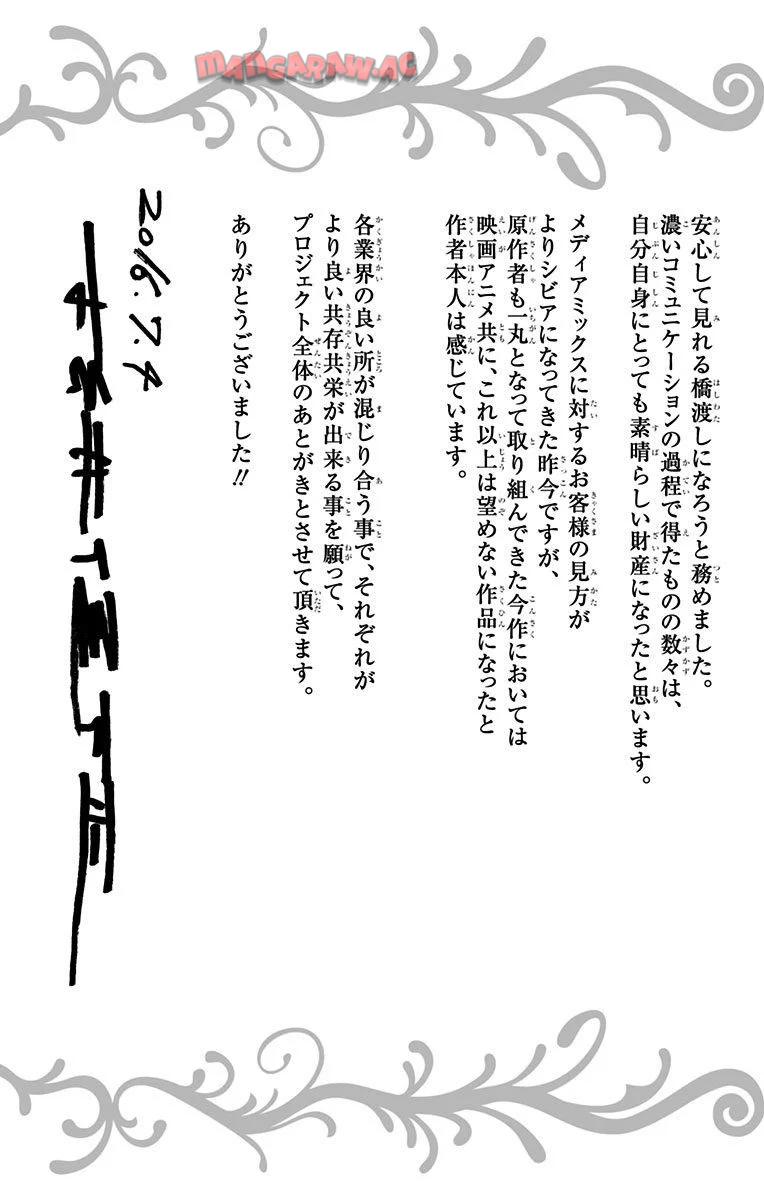 MANGARAW.AC
安心して見れる橋渡しになろうと務めました。
濃いコミュニケーションの過程で得たものの数々は、
自分自身にとっても素晴らしい財産になったと思います。
メディアミックスに対するお客様の見方が
よりシビアになってきた昨今ですが、
原作者も一丸となって取り組んできた今作においては
映画アニメ共に、これ以上は望めない作品になったと
作者本人は感じています。
各業界の良い所が混じり合う事で、それぞれが
より良い共存共栄が出来る事を願って、
プロジェクト全体のあとがきとさせて頂きます。
ありがとうございました!!
2016.7.4